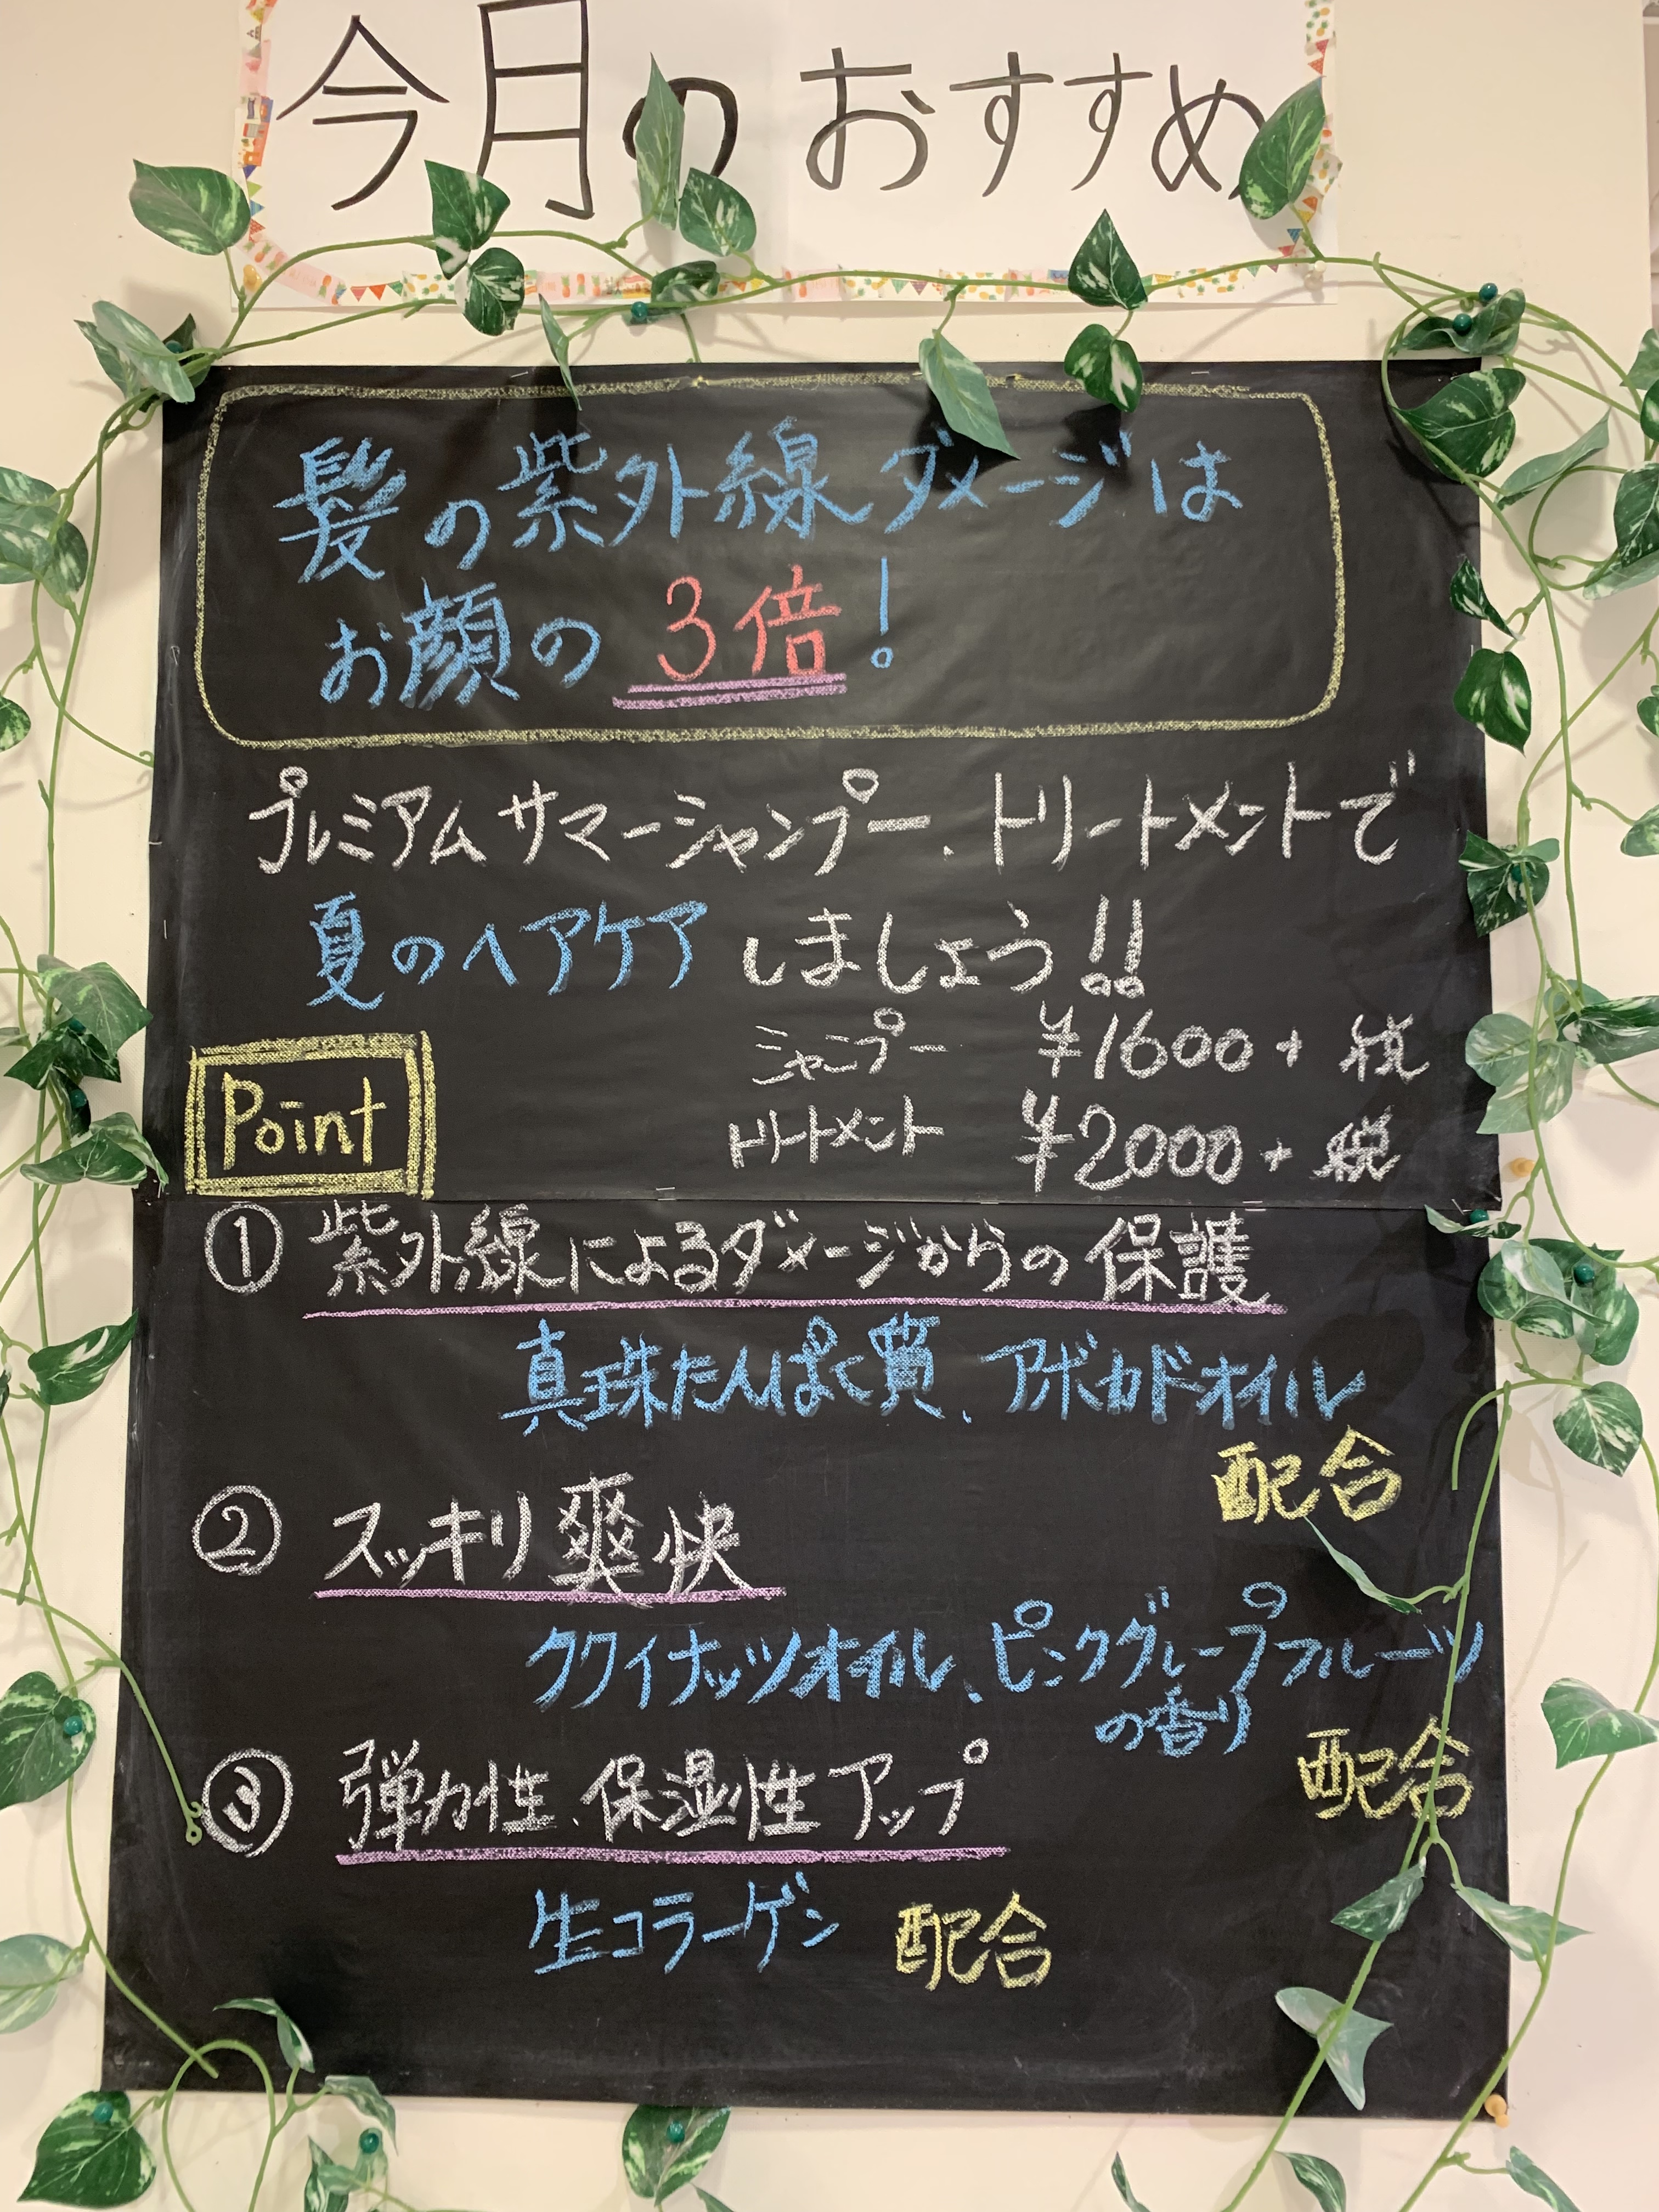 今月のおすすめ
髪の紫外線ダメージは
お顔の3倍!
プレミアムサマーシャンプー、トリートメントで
夏のヘアケアしましょう!!
シャンプー ¥1600+税
トリートメント ¥2000+税
Point
① 紫外線によるダメージからの保護
真珠たんぱく質、アボカドオイル
配合
② スッキリ爽快
ククイナッツオイル、ピンクグレープフルーツ
の香り
配合
③ 弾力性、保湿性アップ
生コラーゲン 配合